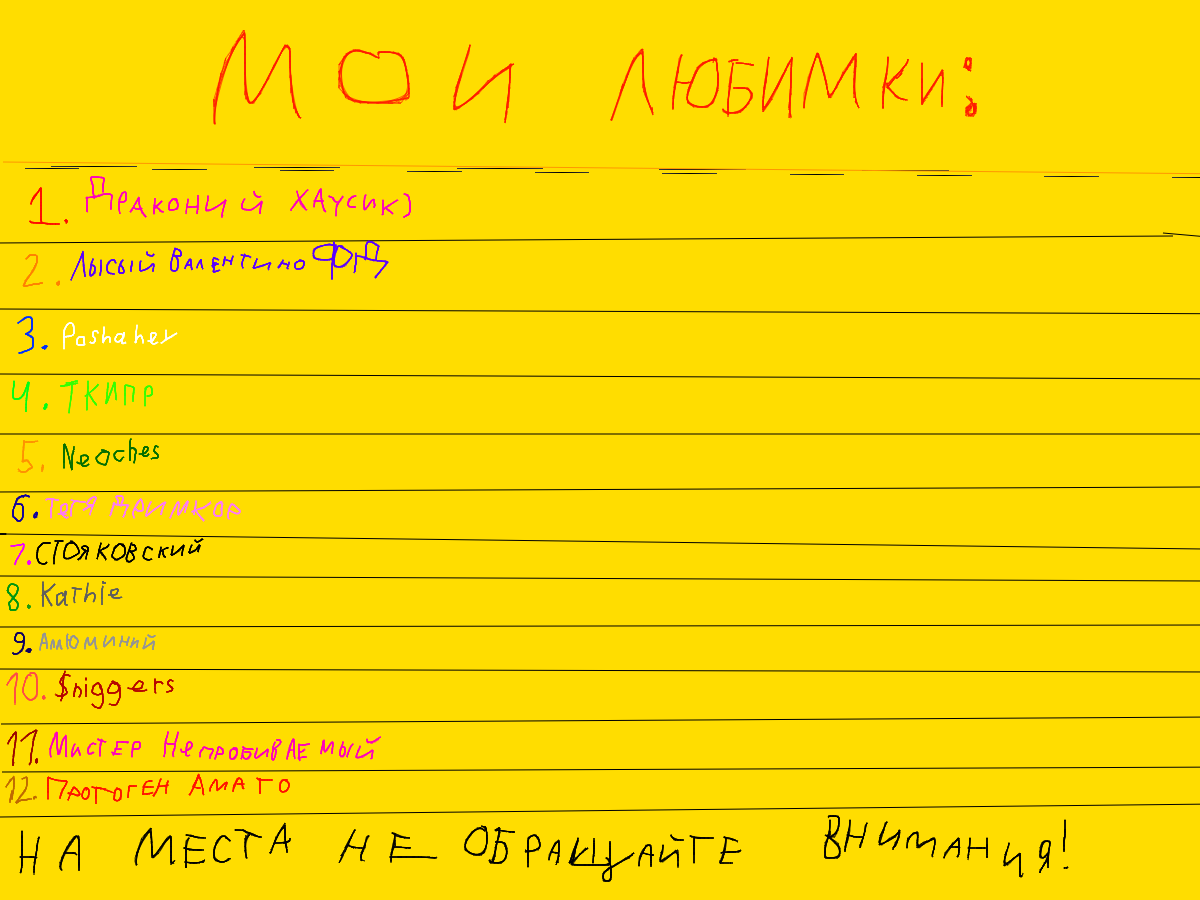 МОИ ЛЮБИМКИ:
1. ДРАКОНИЙ ХАУСИК)
2. ЛЫСЫЙ ВАЛЕНТИНО ФД
3. Pashahey
4. ТКИПР
5. Neoches
6. ТЕТЯ ДРИМКОР
7. СТОЯКОВСКИЙ
8. Kathie
9. АЛЮМИНИЙ
10. $niggers
11. МИСТЕР НЕПРОБИВАЕМЫЙ
12. ПРОТОГЕН АМАТО
НА МЕСТА НЕ ОБРАЩАЙТЕ ВНИМАНИЯ!